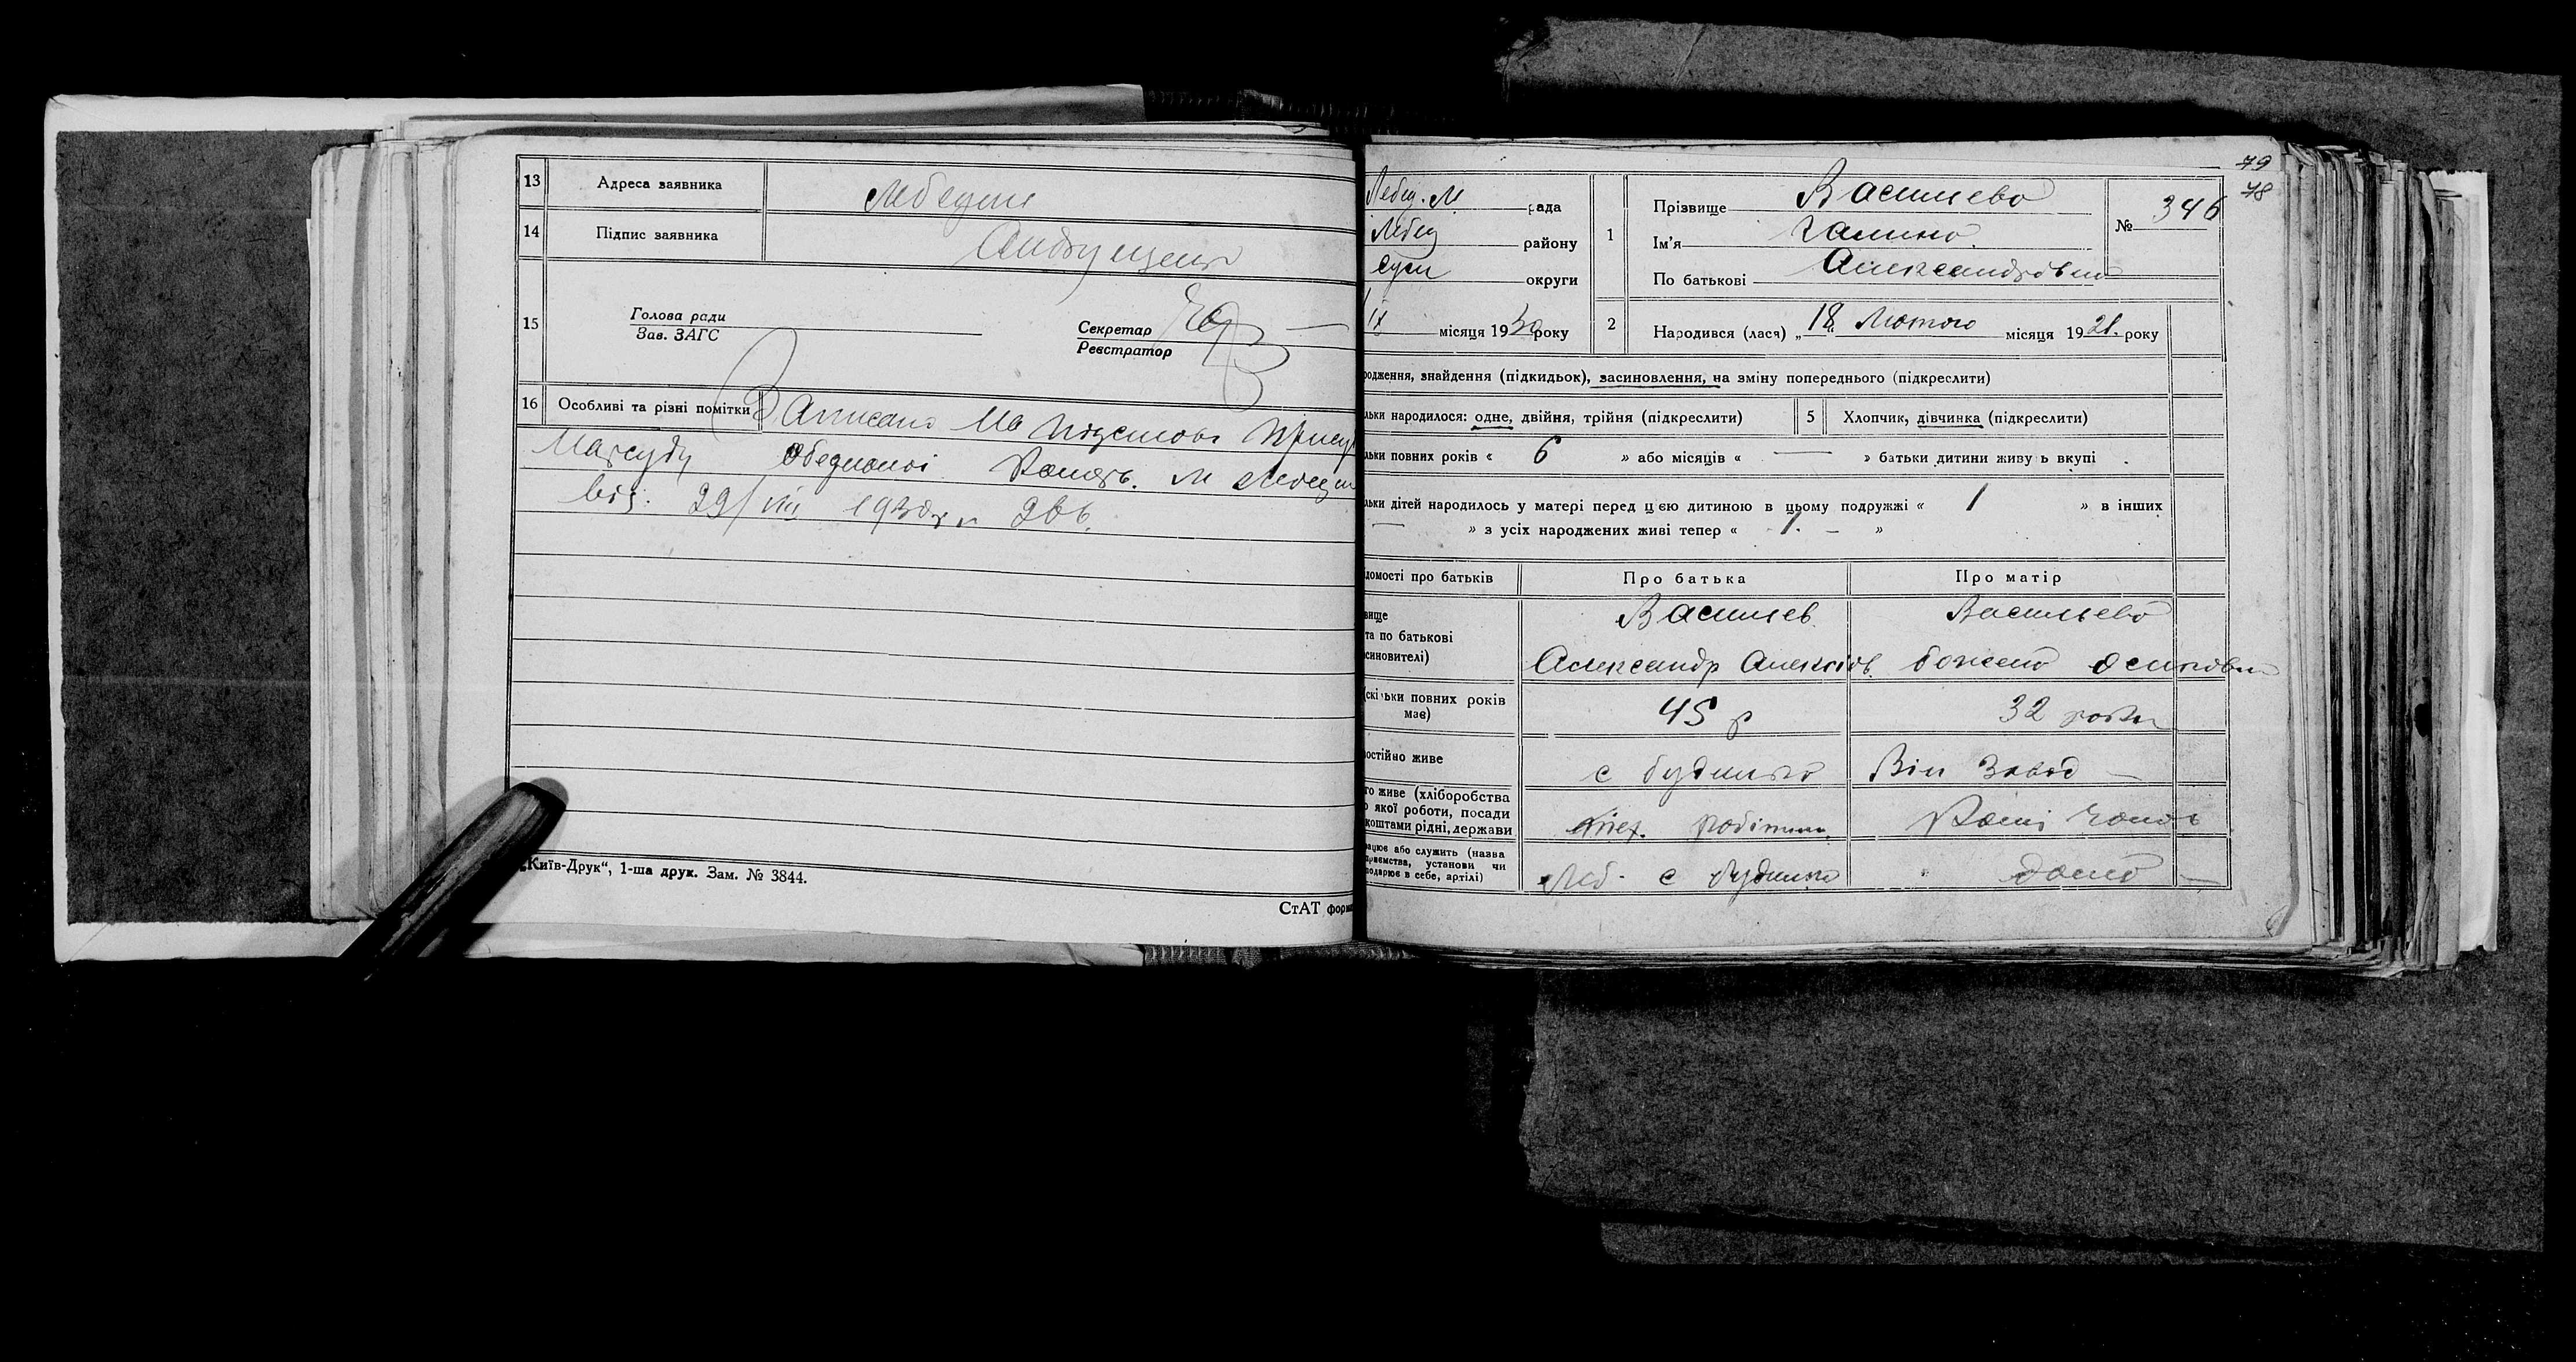 13 Адреса заявника Лебедин
14 Підпис заявника
15 Голова ради
Зав. ЗАГС
Секретар
Реєстратор
16 Особливі та різні помітки Записано На підставі
Нарсуду Лебедин
від. 29/VIII 1930 р
„Київ-Друк“, 1-ша друк. Зам. № 3844.
СтАТ форм
79
78
Лебед. М рада
Лебед району
Сум округи
IX місяця 1930 року
1 Прізвище Васильева
Ім’я Галина
По батькові Александровна
№ 346
2 Народився (лася) „18“ Лютого місяця 1921. року
родження, знайдення (підкидьок), засиновлення, на зміну попереднього (підкреслити)
льки народилося: одне, двійня, трійня (підкреслити) 5 Хлопчик, дівчинка (підкреслити)
льки повних років « 6 » або місяців « — » батьки дитини живу ь вкупі
льки дітей народилось у матері перед цею дитиною в цьому подружжі « 1 » в інших
— » з усіх народжених живі тепер « 1. – »
домості про батьків Про батька Про матір
вище
та по батькові
синовителі)
Васильев Васильева
Александр
(скільки повних років має) 45 р 32 роки
остійно живе с будинко Він завод —
го живе (хліборобства
о якої роботи, посади
коштами рідні, держави
ацює або служить (назва
дприємства, установи чи
подарює в себе, артілі)
Леб. с будинко дома —